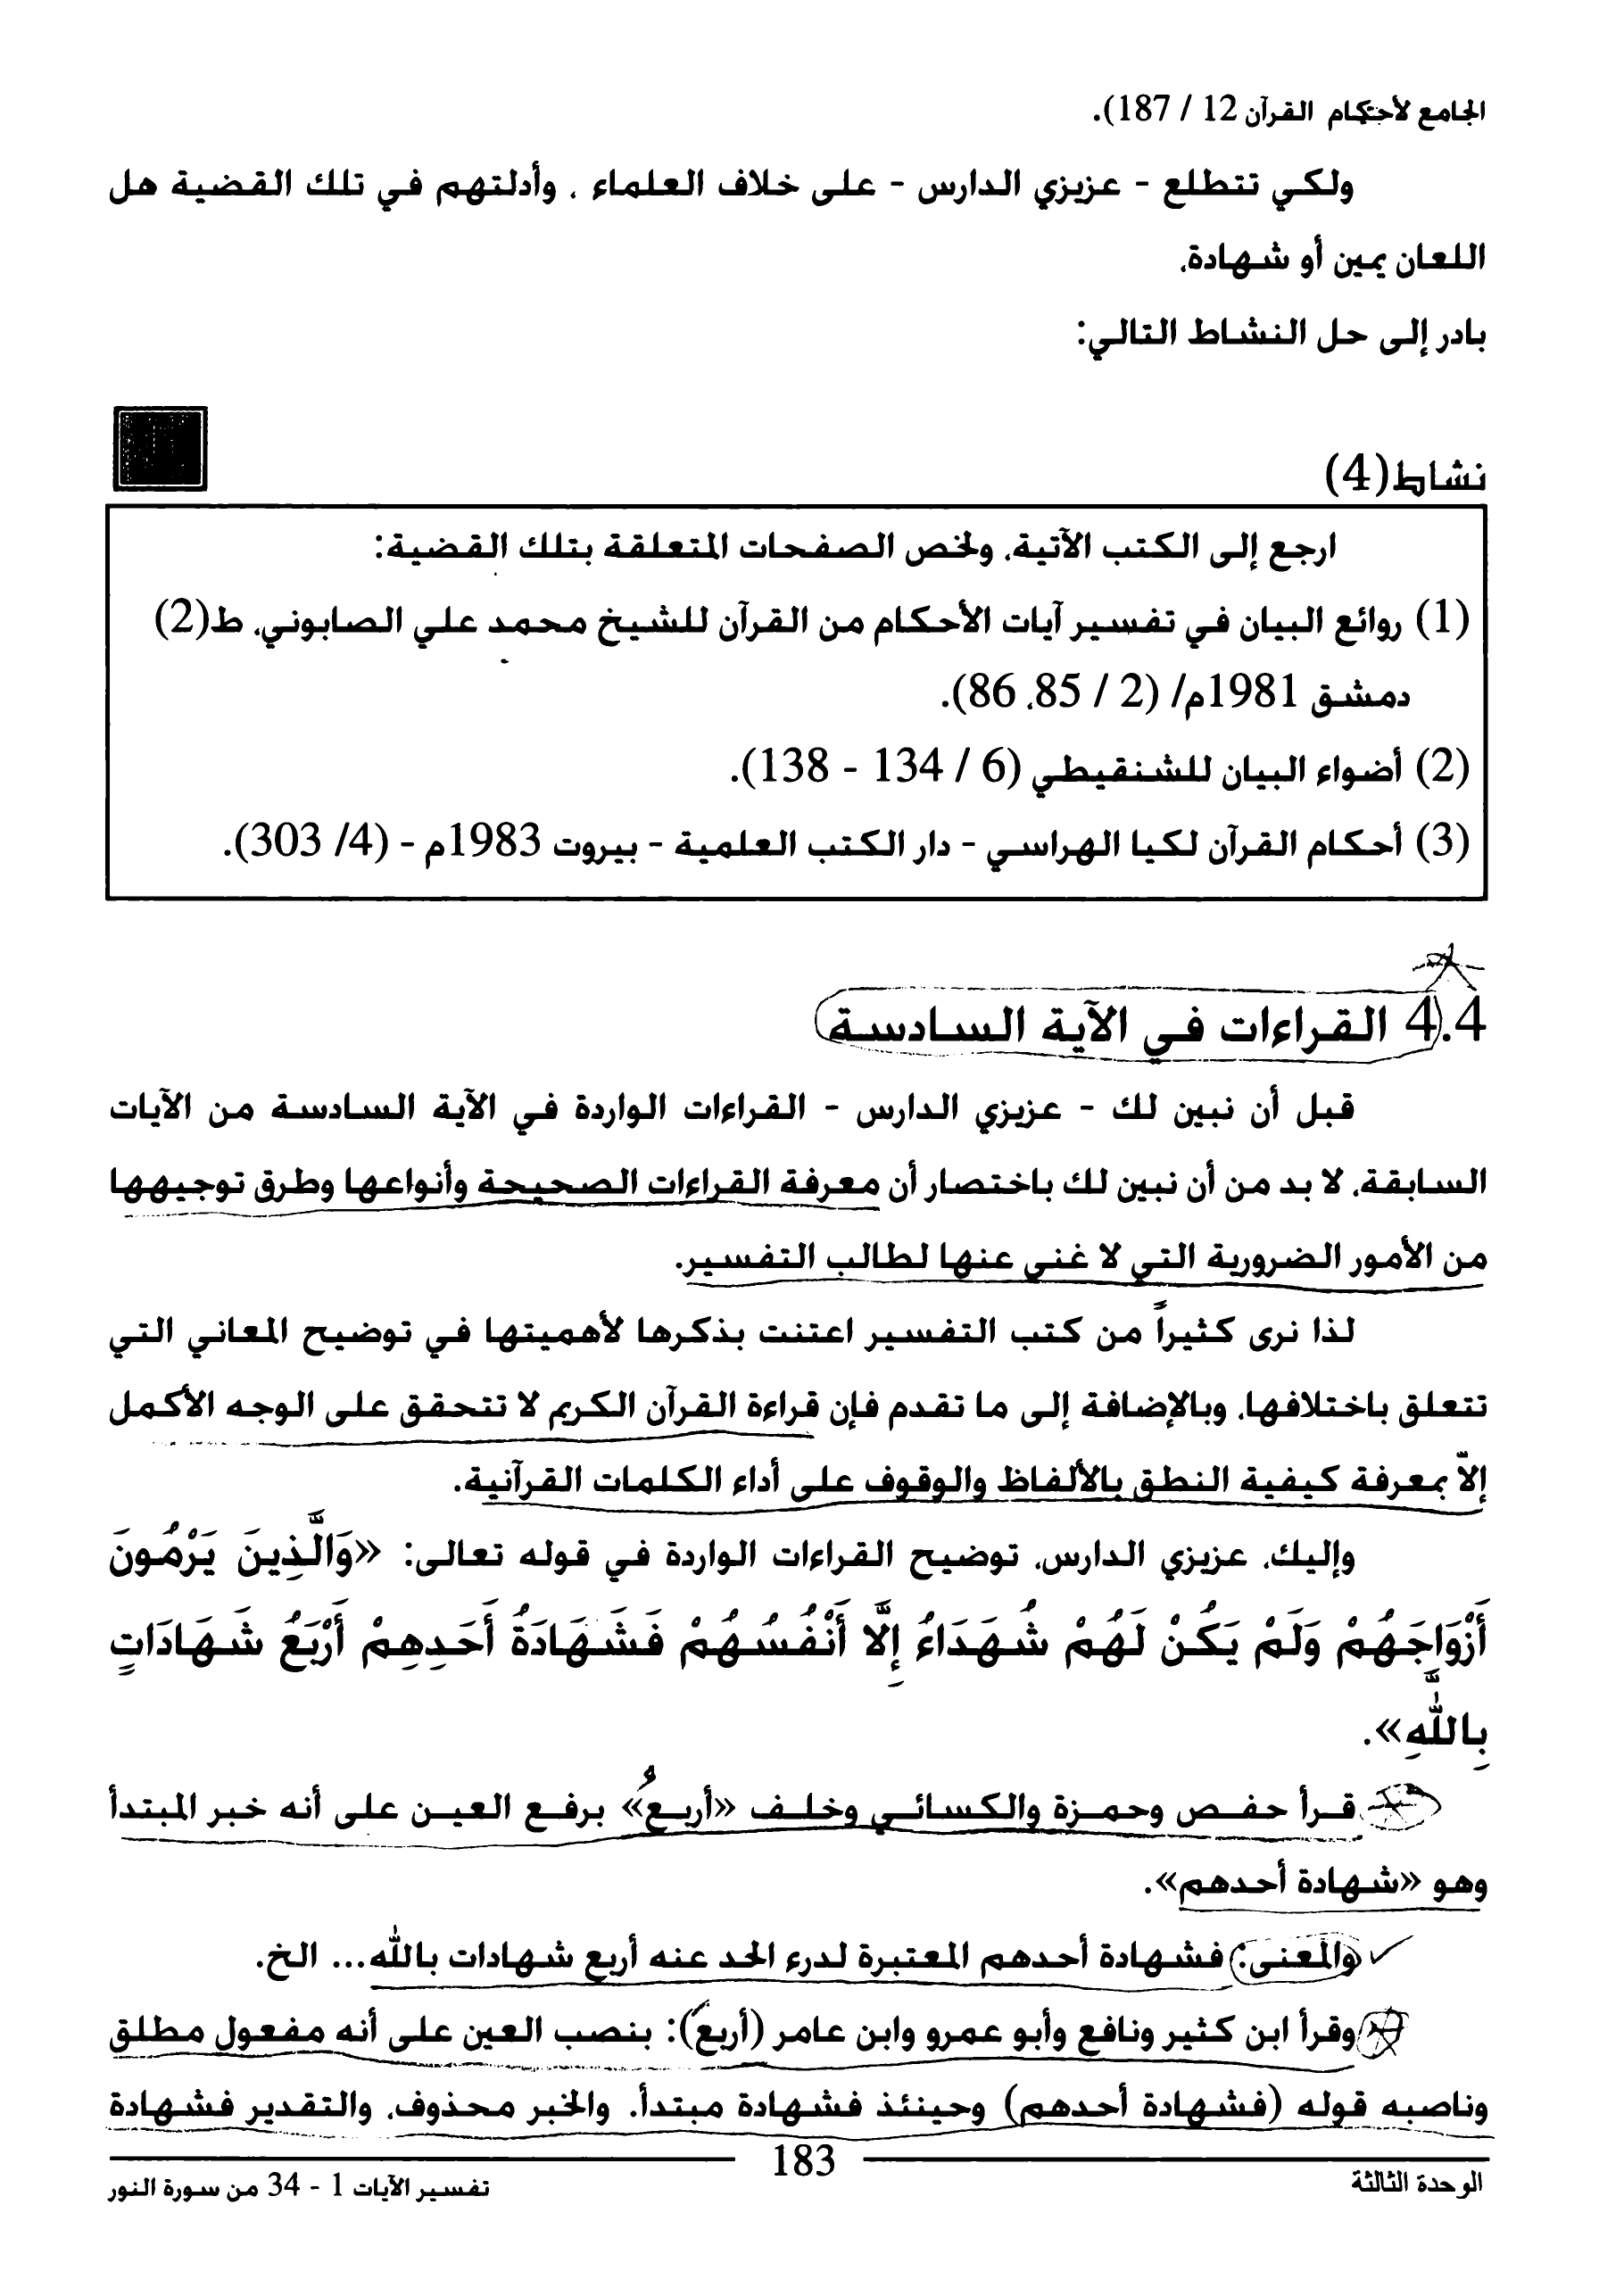 الجامع لأحكام القرآن 12 / 187).
ولكي تتطلع - عزيزي الدارس - على خلاف العلماء ، وأدلتهم في تلك القضية هل
اللعان يمين أو شهادة،
بادر إلى حل النشاط التالي:
نشاط(4)
ارجع إلى الكتب الآتية، ولخص الصفحات المتعلقة بتلك القضية:
(1) روائع البيان في تفسير آيات الأحكام من القرآن للشيخ محمد علي الصابوني، ط(2)
دمشق 1981م/ (2 / 85، 86).
(2) أضواء البيان للشنقيطي (6 / 134 - 138).
(3) أحكام القرآن لكيا الهراسي - دار الكتب العلمية - بيروت 1983م - (4/ 303).
4.4 القراءات في الآية السادسة
قبل أن نبين لك - عزيزي الدارس - القراءات الواردة في الآية السادسة من الآيات
السابقة، لا بد من أن نبين لك باختصار أن معرفة القراءات الصحيحة وأنواعها وطرق توجيهها
من الأمور الضرورية التي لا غنى عنها لطالب التفسير.
لذا نرى كثيراً من كتب التفسير اعتنت بذكرها لأهميتها في توضيح المعاني التي
تتعلق باختلافها، وبالإضافة إلى ما تقدم فإن قراءة القرآن الكريم لا تتحقق على الوجه الأكمل
إلاّ بمعرفة كيفية النطق بالألفاظ والوقوف على أداء الكلمات القرآنية.
وإليك، عزيزي الدارس، توضيح القراءات الواردة في قوله تعالى: «وَالَّذِينَ يَرْمُونَ
أَزْوَاجَهُمْ وَلَمْ يَكُنْ لَهُمْ شُهَدَاءُ إِلَّا أَنْفُسُهُمْ فَشَهَادَةُ أَحَدِهِمْ أَرْبَعُ شَهَادَاتٍ
بِاللَّهِ».
قرأ حفص وحمزة والكسائي وخلف «أربعُ» برفع العين على أنه خبر المبتدأ
وهو «شهادة أحدهم».
والمعنى: فشهادة أحدهم المعتبرة لدرء الحد عنه أربع شهادات بالله... الخ.
وقرأ ابن كثير ونافع وأبو عمرو وابن عامر (أربعَ): بنصب العين على أنه مفعول مطلق
وناصبه قوله (فشهادة أحدهم) وحينئذ فشهادة مبتدأ. والخبر محذوف، والتقدير فشهادة
183
الوحدة الثالثة
تفسير الآيات 1 - 34 من سورة النور